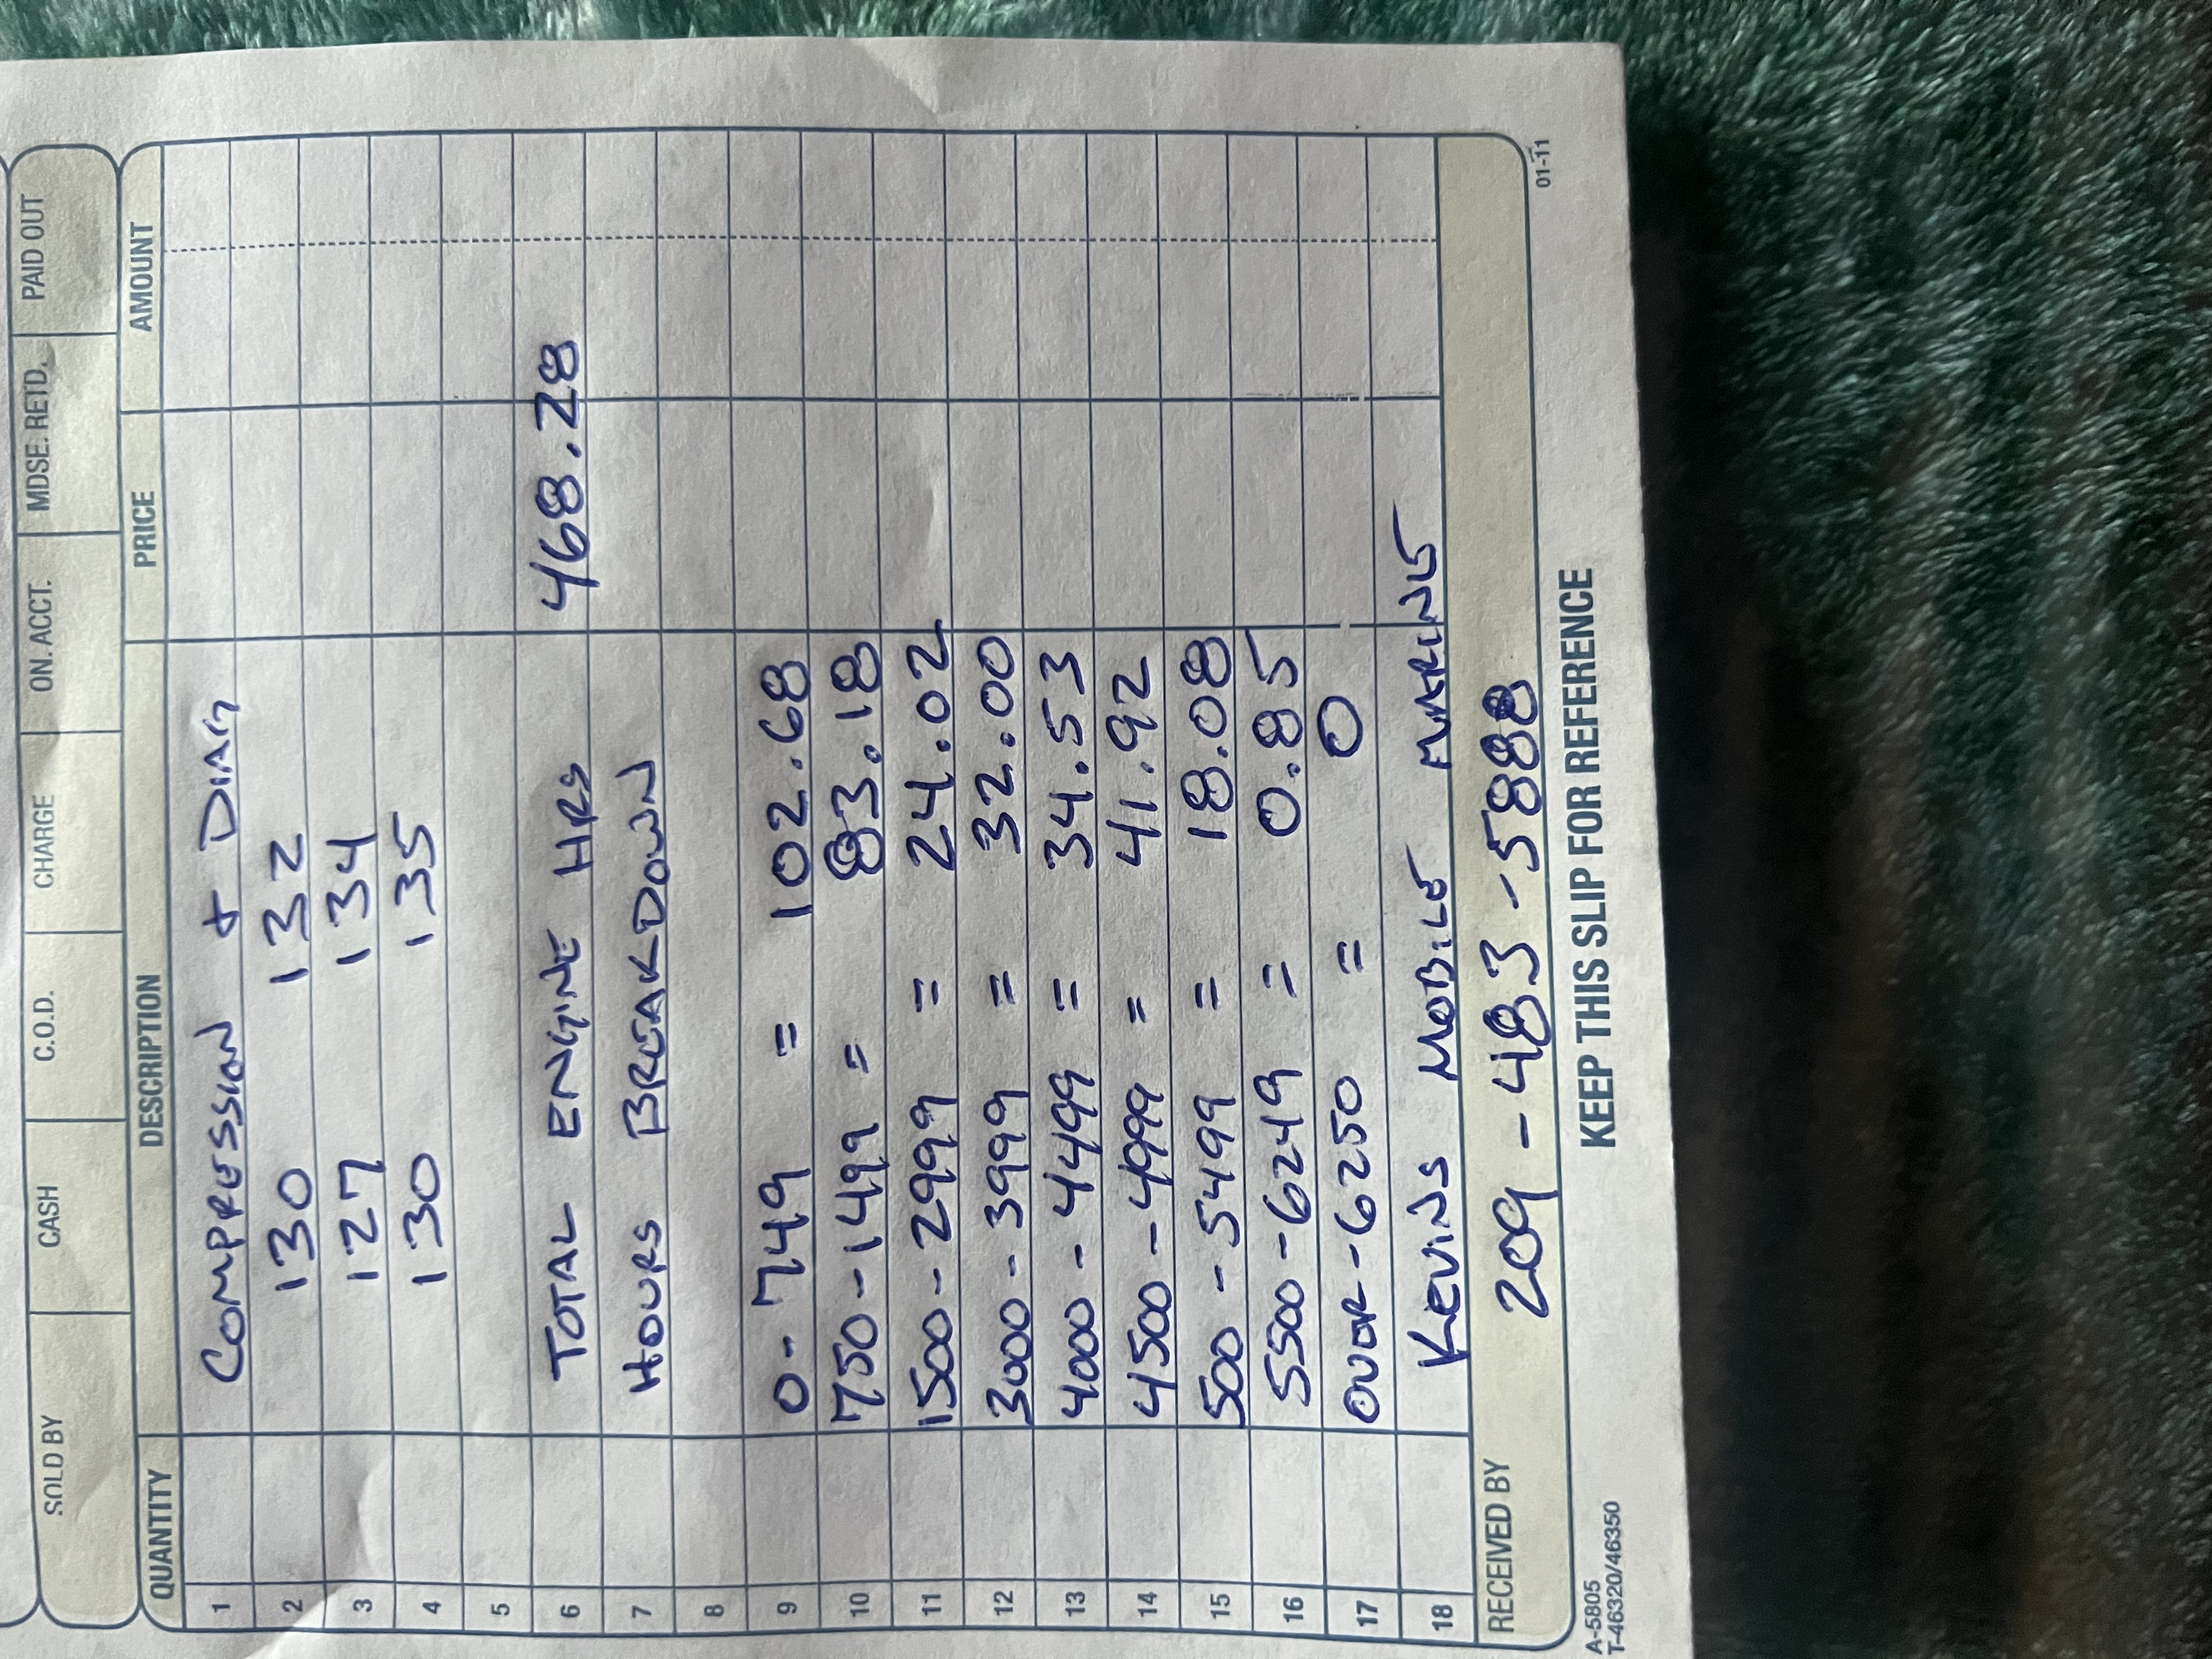 SOLD BY CASH C.O.D. CHARGE ON. ACCT. MDSE. RETD. PAID OUT
QUANTITY DESCRIPTION PRICE AMOUNT
1 COMPRESSION + DIAG
2 130 132
3 127 134
4 130 135
5
6 TOTAL ENGINE HRS 468.28
7 HOURS BREAKDOWN
8
9 0-749 = 102.68
10 750-1499 = 83.18
11 1500-2999 = 24.02
12 3000-3999 = 32.00
13 4000-4499 = 34.53
14 4500-4999 = 41.92
15 500-5499 = 18.08
16 5500-6249 = 0.85
17 OVOR-6250 = 0
18 KEVINS MOBILE MARINE
RECEIVED BY 209-483-5888
A-5805
T-46320/46350
KEEP THIS SLIP FOR REFERENCE
01-11